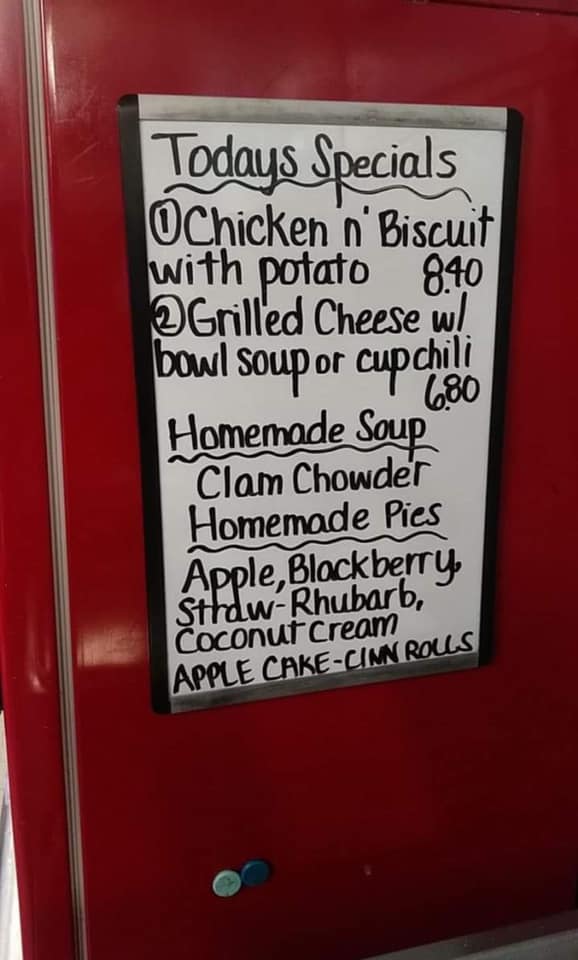 Todays Specials
①Chicken n' Biscuit
with potato 8.40
②Grilled Cheese w/
bowl soup or cup chili
6.80
Homemade Soup
Clam Chowder
Homemade Pies
Apple, Blackberry,
Straw-Rhubarb,
Coconut Cream
APPLE CAKE-CINN ROLLS